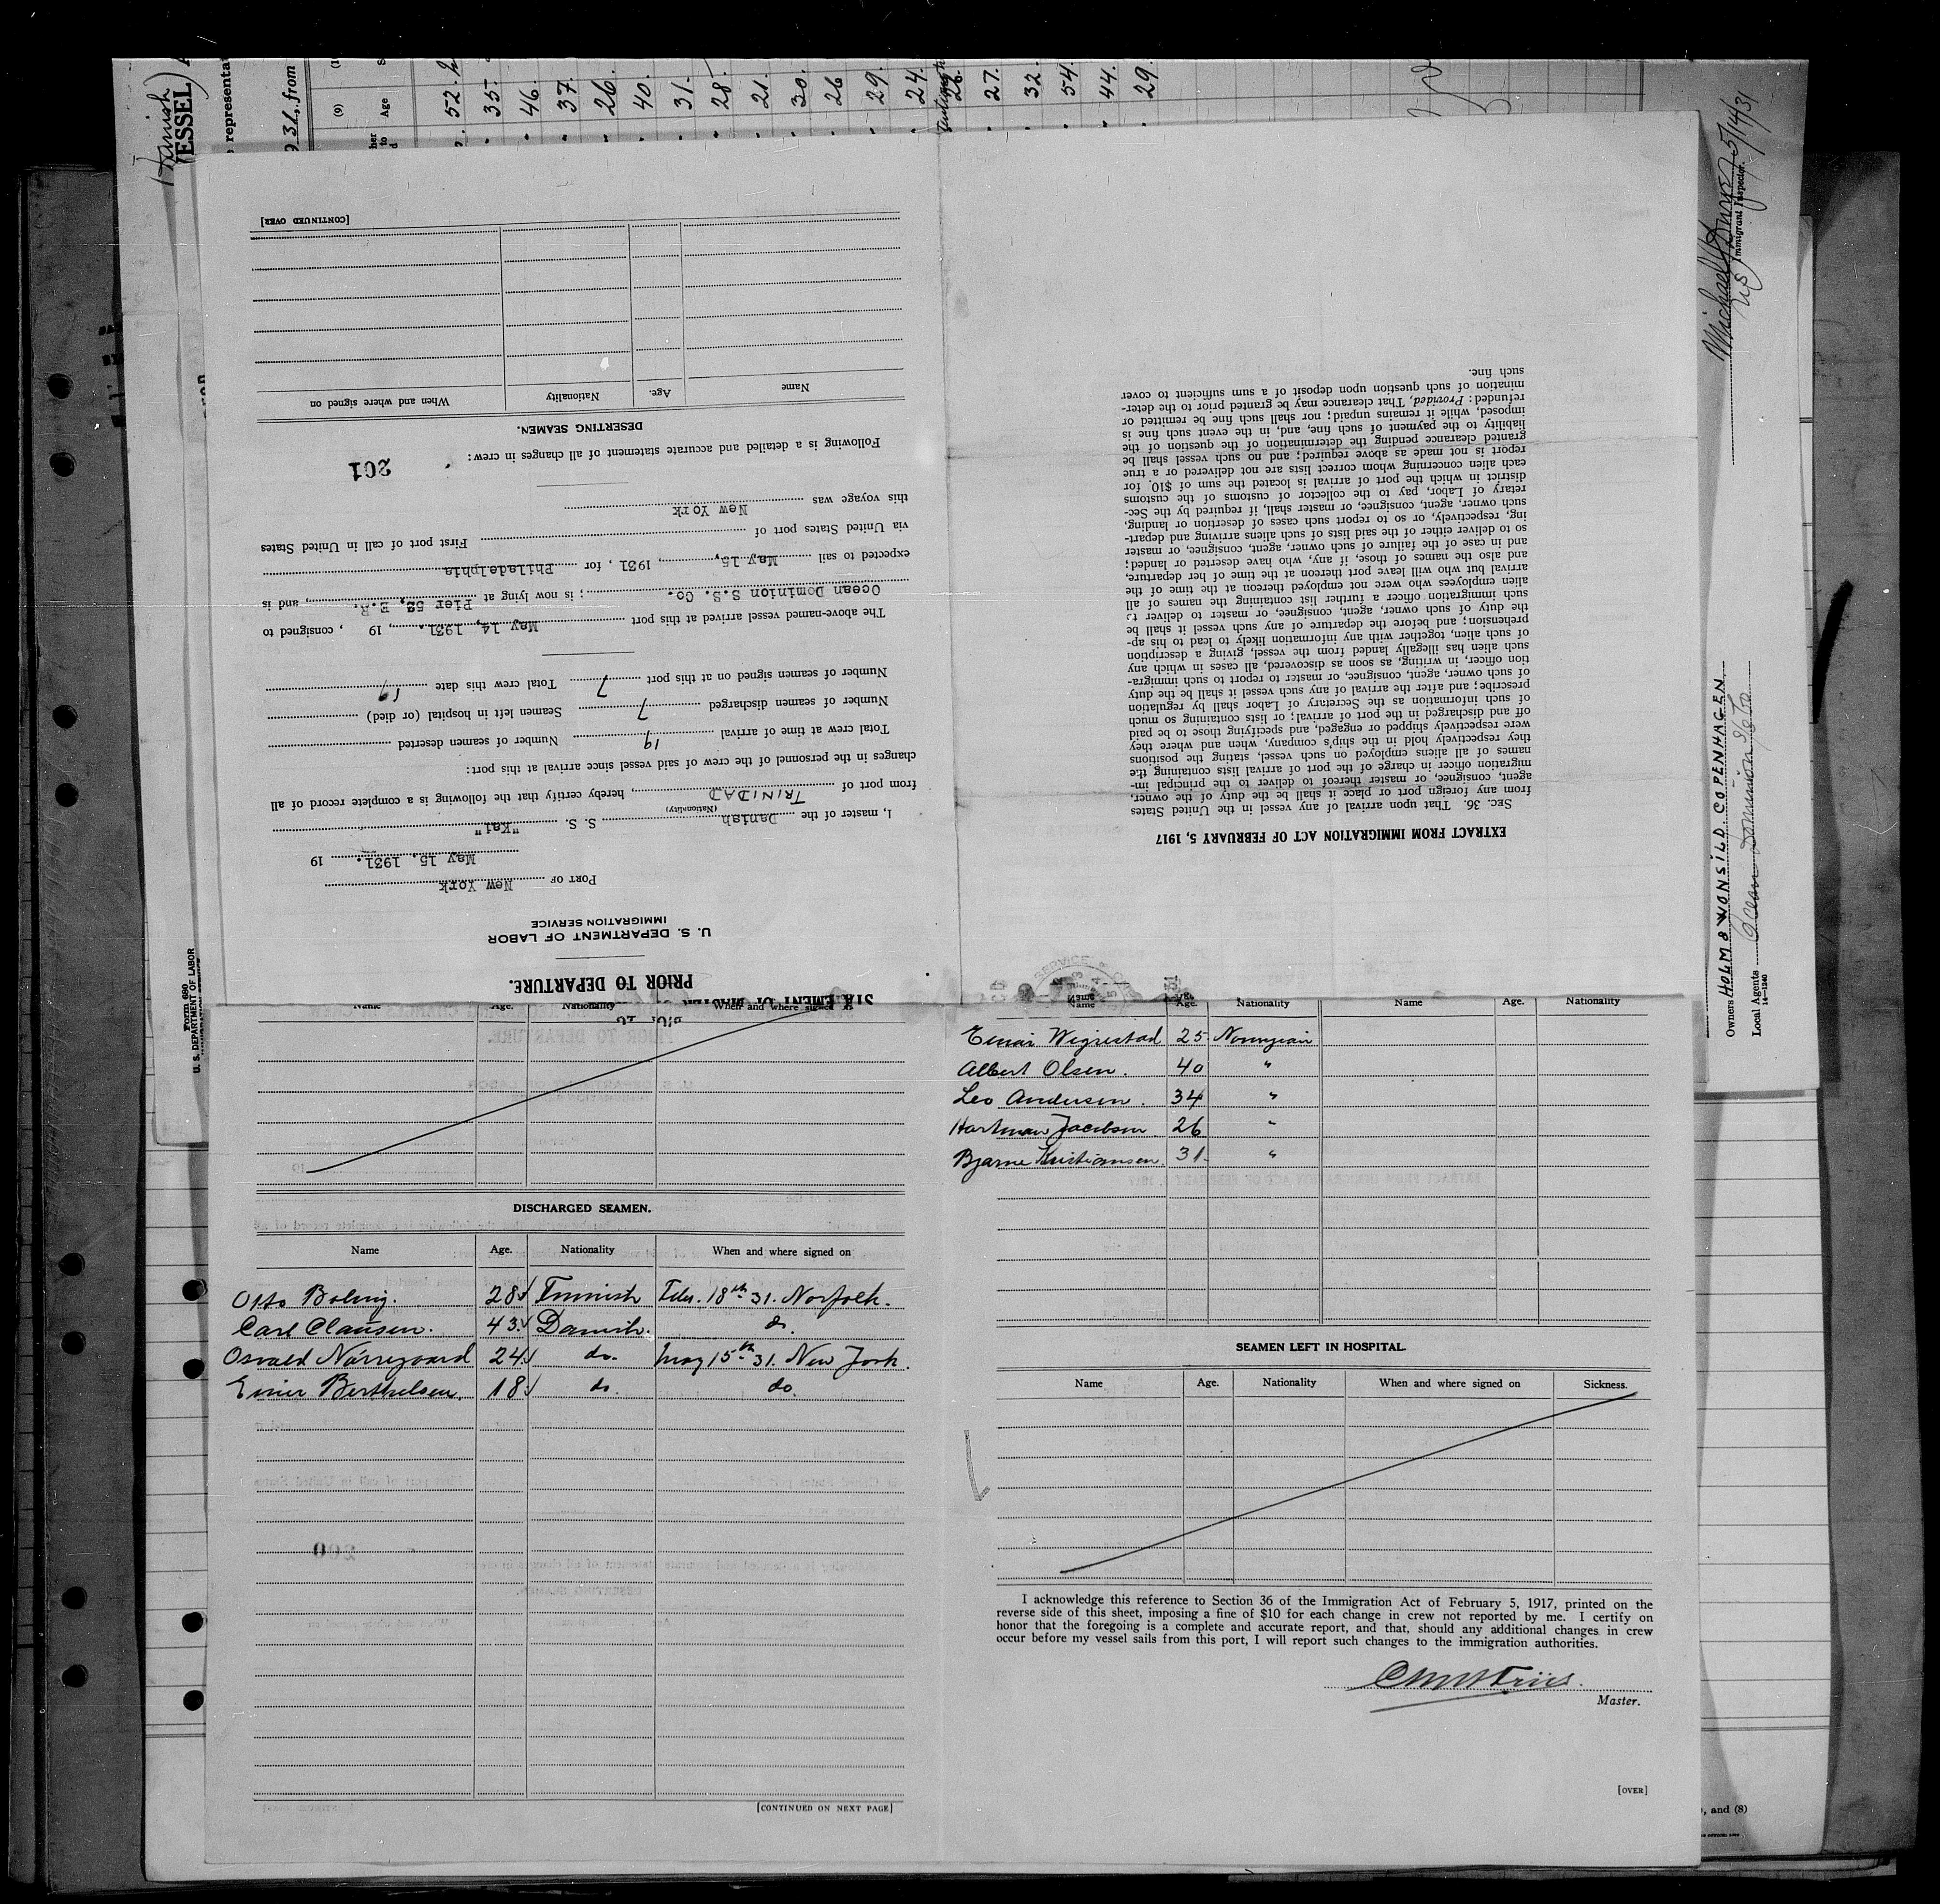 (Danish
VESSEL)
representa
31, from
(9)
Age
52
35.
46.
37.
26.
40.
31.
28.
21.
30.
26
29.
24.
26.
27.
32.
54.
44.
29.
5/14/31
Immigrant Inspector.
Owners HOLM & WONSILD COPENHAGEN
Local Agents Ocean Dominion
14—1240
Form 680
U. S. DEPARTMENT OF LABOR
PRIOR TO DEPARTURE.
U. S. DEPARTMENT OF LABOR
IMMIGRATION SERVICE
PORT OF New York
May 15, 1931. 19
I, master of the Danish S. S. "Kai"
(Nationality)
from port of TRINIDAD, hereby certify that the following is a complete record of all
changes in the personnel of the crew of said vessel since arrival at this port:
Total crew at time of arrival 19 Number of seamen deserted
Number of seamen discharged 7 Seamen left in hospital (or died)
Number of seamen signed on at this port 7 Total crew this date 19
The above-named vessel arrived at this port May 14, 1931., 19 , consigned to
Ocean Dominion S.S. Co. ; is now lying at Pier 52, E.R. , and is
expected to sail May 15, , 1931 , for Philadelphia
via United States port of First port of call in United States
this voyage was New York
Following is a detailed and accurate statement of all changes in crew:
201
DESERTING SEAMEN.
Name Age. Nationality When and where signed on
[CONTINUED OVER]
EXTRACT FROM IMMIGRATION ACT OF FEBRUARY 5, 1917
SEC. 36. That upon arrival of any vessel in the United States
from any foreign port or place it shall be the duty of the owner,
agent, consignee, or master thereof to deliver to the principal im-
migration officer in charge of the port of arrival lists containing the
names of all aliens employed on such vessel, stating the positions
they respectively hold in the ship's company, when and where they
were respectively shipped or engaged, and specifying those to be paid
off and discharged in the port of arrival; or lists containing so much
of such information as the Secretary of Labor shall by regulation
prescribe; and after the arrival of any such vessel it shall be the duty
of such owner, agent, consignee, or master to report to such immigra-
tion officer, in writing, as soon as discovered, all cases in which any
such alien has illegally landed from the vessel, giving a description
of such alien, together with any information likely to lead to his ap-
prehension; and before the departure of any such vessel it shall be
the duty of such owner, agent, consignee, or master to deliver to
such immigration officer a further list containing the names of all
alien employees who were not employed thereon at the time of the
arrival but who will leave port thereon at the time of her departure,
and also the names of those, if any, who have deserted or landed;
and in case of the failure of such owner, agent, consignee, or master
so to deliver either of the said lists of such aliens arriving and depart-
ing, respectively, or so to report such cases of desertion or landing,
such owner, agent, consignee, or master shall, if required by the Sec-
retary of Labor, pay to the collector of customs of the customs
district in which the port of arrival is located the sum of $10. for
each alien concerning whom correct lists are not delivered or a true
report is not made as above required; and no such vessel shall be
granted clearance pending the determination of the question of the
liability to the payment of such fine, and, in the event such fine is
imposed, while it remains unpaid; nor shall such fine be remitted or
refunded: Provided, That clearance may be granted prior to the deter-
mination of such question upon deposit of a sum sufficient to cover
such fine.
Name Age. Nationality When and where signed
DISCHARGED SEAMEN.
Name Age. Nationality When and where signed on
Otto Bolmig. 28 Finnish Febr. 18th 31. Norfolk.
Carl Clausen. 43. Danish. do.
Osvald Nörregaard 24 do. May 15th 31. New York.
Einer Berthelsen. 18 do. do.
[CONTINUED ON NEXT PAGE]
Name Age. Nationality Name Age. Nationality
Einar Wigrestad 25 Norwegian
Albert Olsen. 40 "
Leo Andersen. 34 "
Hartman Jacobsen 26 "
Bjarne Kristiansen. 31. "
SEAMEN LEFT IN HOSPITAL.
Name Age. Nationality When and where signed on Sickness.
I acknowledge this reference to Section 36 of the Immigration Act of February 5, 1917, printed on the
reverse side of this sheet, imposing a fine of $10 for each change in crew not reported by me. I certify on
honor that the foregoing is a complete and accurate report, and that, should any additional changes in crew
occur before my vessel sails from this port, I will report such changes to the immigration authorities.
Master.
[OVER]
, and (8)